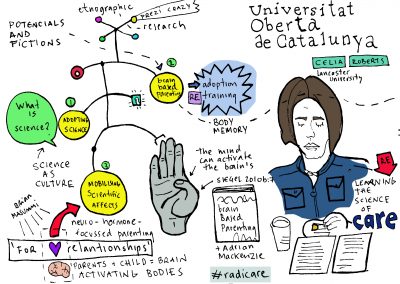 POTENCIALS
AND
FICTIONS
ethnographic
PREZI CRAZY
research
Universitat
Oberta
de Catalunya
CELIA ROBERTS
Lancaster
University
What
is
science?
1
ADOPTING
SCIENCE
2
brain
based
parenting
adoption
RE training
BODY
MEMORY
SCIENCE
AS
CULTURE
3
MOBILISING
Scientific
AFFECTS
The mind
can activate
the brain's
SIEGEL 2010b:7
brain
Based
Parenting
+ Adrian
Mackenzie
#radicare
RE
LEARNING
THE
SCIENCE
OF
care
BRIAN
MASSUMI
neuro-hormone-
focussed parenting
FOR relantionships
PARENTS = CHILD = BRAIN
ACTIVATING BODIES